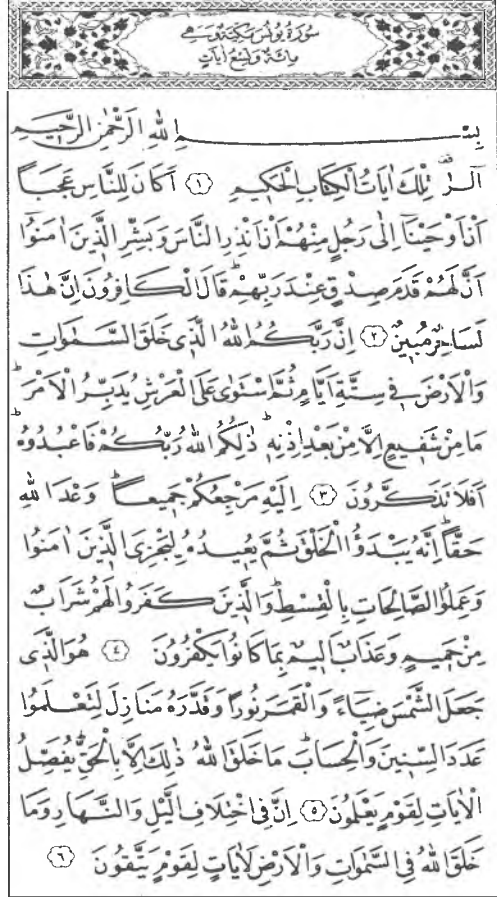 سُورَةُ يُونُسَ مَكِّيَّةٌ وَهِيَ
مِائَةٌ وَتِسْعُ اٰيَاتٍ
بِسْمِ اللّٰهِ الرَّحْمٰنِ الرَّحِيمِ
الٓرٰ تِلْكَ اٰيَاتُ الْكِتَابِ الْحَكِيمِ ﴿١﴾ اَكَانَ لِلنَّاسِ عَجَباً
اَنْ اَوْحَيْنَآ اِلٰى رَجُلٍ مِنْهُمْ اَنْ اَنْذِرِ النَّاسَ وَبَشِّرِ الَّذِينَ اٰمَنُٓوا
اَنَّ لَهُمْ قَدَمَ صِدْقٍ عِنْدَ رَبِّهِمْۜ قَالَ الْكَافِرُونَ اِنَّ هٰذَا
لَسَاحِرٌ مُبِينٌ ﴿٢﴾ اِنَّ رَبَّكُمُ اللّٰهُ الَّذِي خَلَقَ السَّمٰوَاتِ
وَالْاَرْضَ فِي سِتَّةِ اَيَّامٍ ثُمَّ اسْتَوٰى عَلَى الْعَرْشِ يُدَبِّرُ الْاَمْرَۜ
مَا مِنْ شَفِيعٍ اِلَّا مِنْ بَعْدِ اِذْنِهِۜ ذٰلِكُمُ اللّٰهُ رَبُّكُمْ فَاعْبُدُوهُۜ
اَفَلَا تَذَكَّرُونَ ﴿٣﴾ اِلَيْهِ مَرْجِعُكُمْ جَمِيعاًۜ وَعْدَ اللّٰهِ
حَقّاًۜ اِنَّهُ يَبْدَؤُا الْخَلْقَ ثُمَّ يُعِيدُهُ لِيَجْزِيَ الَّذِينَ اٰمَنُوا
وَعَمِلُوا الصَّالِحَاتِ بِالْقِسْطِۜ وَالَّذِينَ كَفَرُوا لَهُمْ شَرَابٌ
مِنْ حَمِيمٍ وَعَذَابٌ اَلِيمٌ بِمَا كَانُوا يَكْفُرُونَ ﴿٤﴾ هُوَ الَّذِي
جَعَلَ الشَّمْسَ ضِيَٓاءً وَالْقَمَرَ نُوراً وَقَدَّرَهُ مَنَازِلَ لِتَعْلَمُوا
عَدَدَ السِّنِينَ وَالْحِسَابَۜ مَا خَلَقَ اللّٰهُ ذٰلِكَ اِلَّا بِالْحَقِّۚ يُفَصِّلُ
الْاٰيَاتِ لِقَوْمٍ يَعْلَمُونَ ﴿٥﴾ اِنَّ فِي اخْتِلَافِ الَّيْلِ وَالنَّهَارِ وَمَا
خَلَقَ اللّٰهُ فِي السَّمٰوَاتِ وَالْاَرْضِ لَاٰيَاتٍ لِقَوْمٍ يَتَّقُونَ ﴿٦﴾